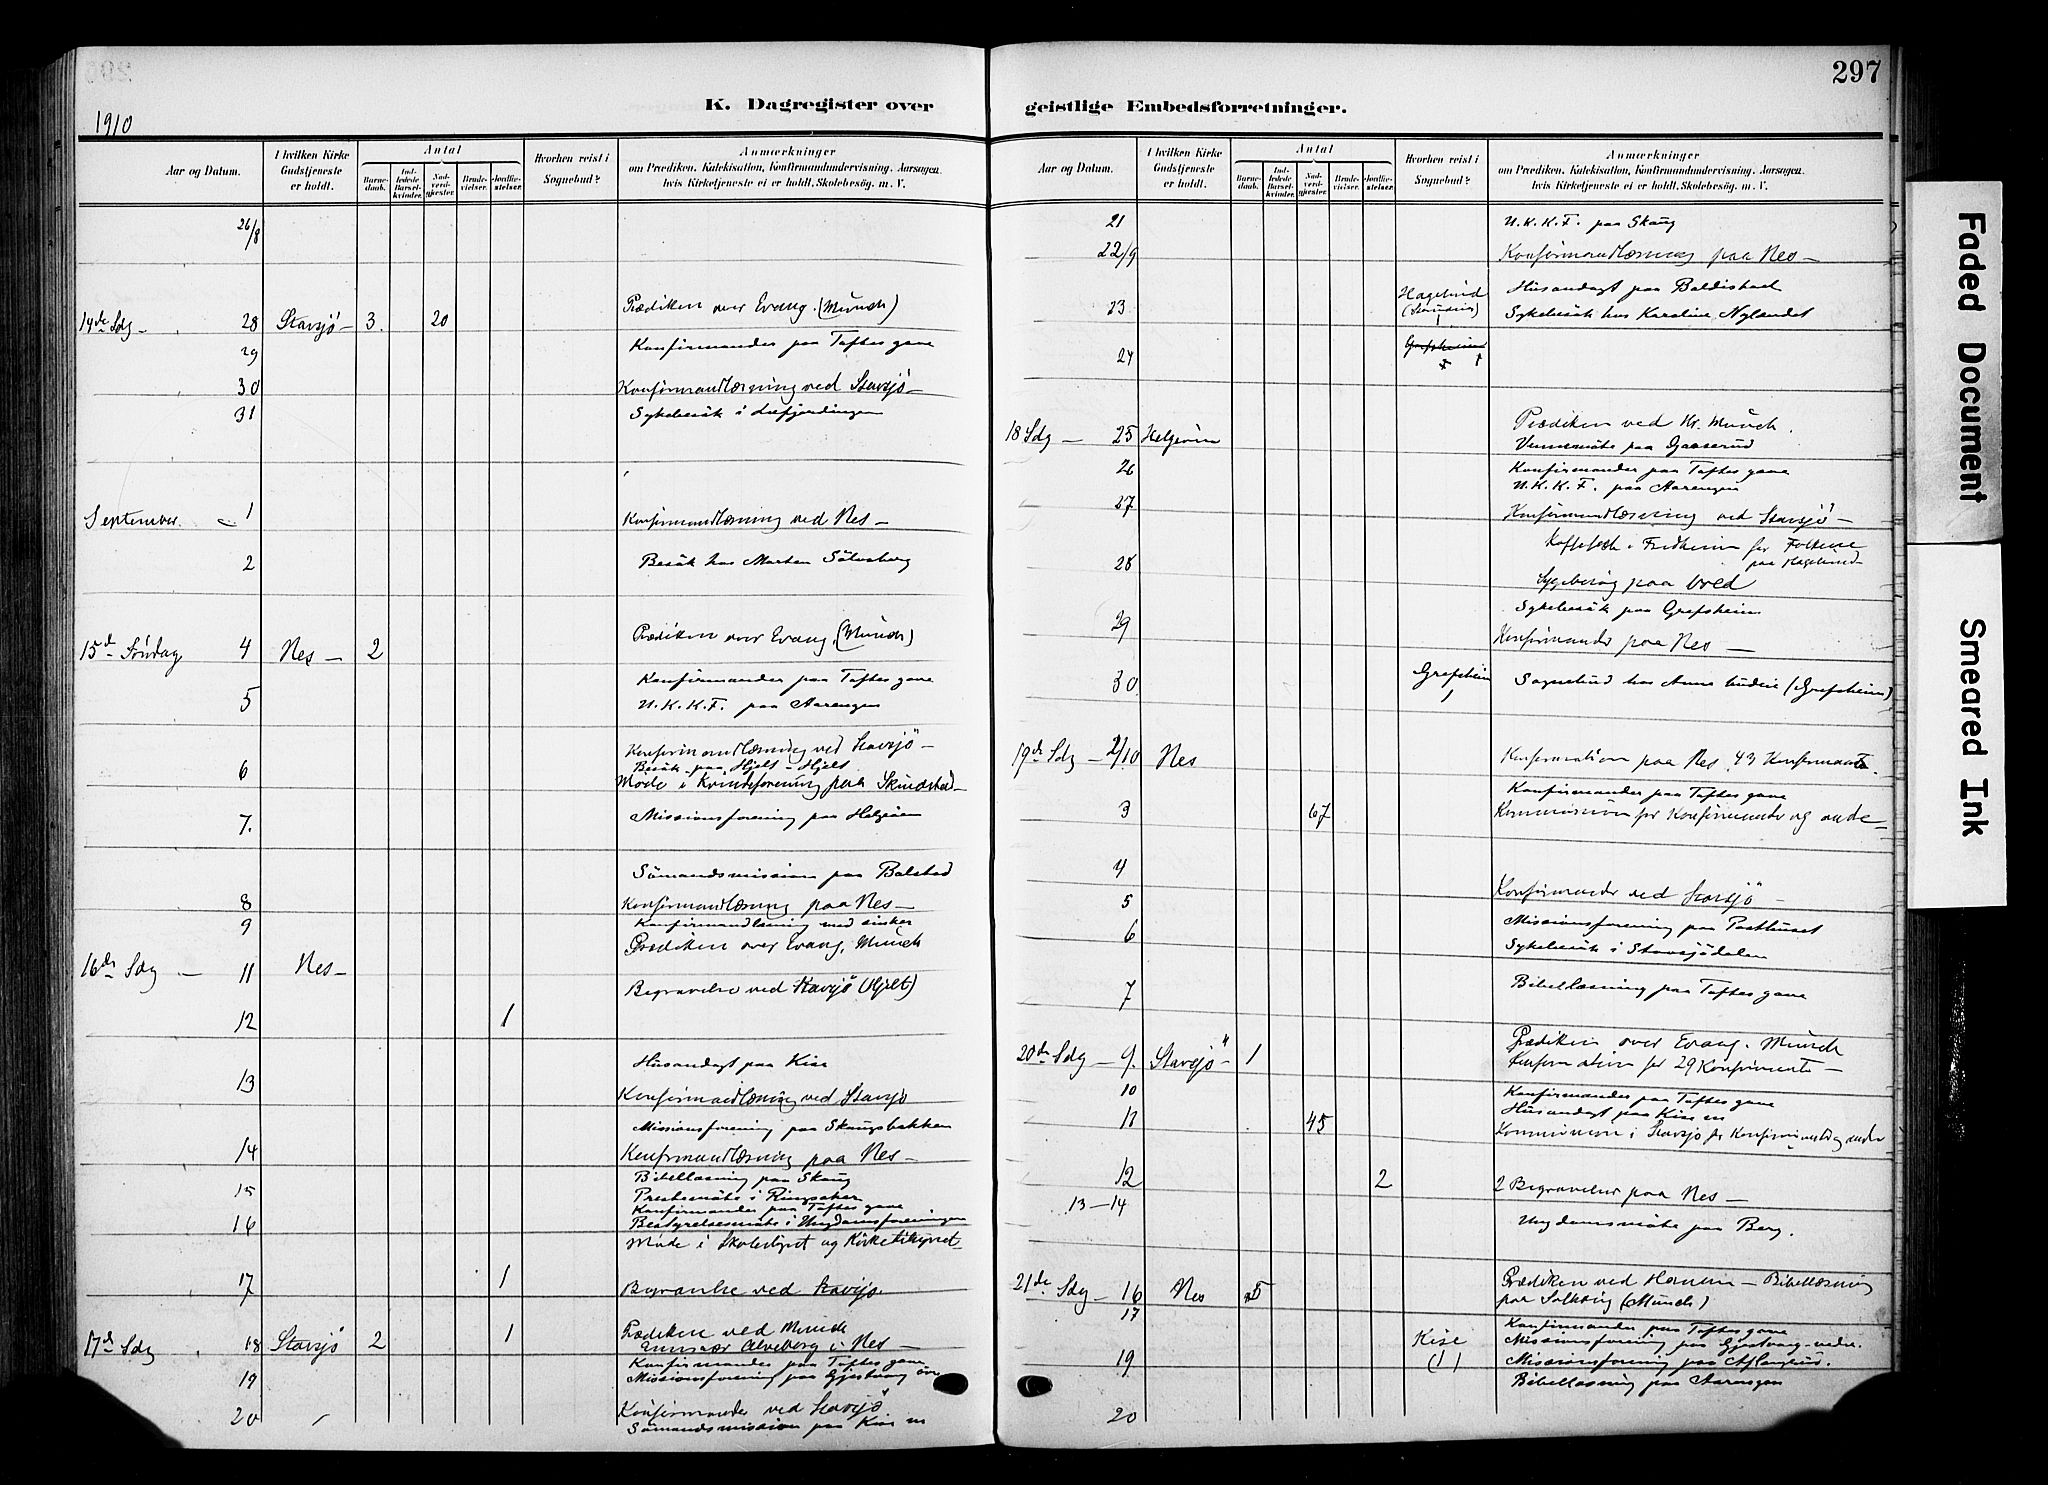 297
K. Dagregister over
geistlige Embedsforretninger.
1910
Aar og Datum.
I hvilken Kirke Gudstjeneste er holdt.
Antal
Barne-daab.
Ind-ledede Barsel-kvinder.
Nad-verd-gjester.
Brude-vielser.
Jordfæ-stelser.
Hvorhen reist i Sognebud?
Anmærkninger
om Prædiken, Katekisation, Konfirmandundervisning, Aarsagen,
hvis Kirketjeneste ei er holdt, Skolebesög, m. V.
26/8
14de Sdg - 28 Stavsjö - 3 20 Prædiken over Evang. (Münch)
29 Konfirmander paa Toftes gave
30 Konfirmandlæsning ved Stavsjö -
31 Sykebesök i
September 1 Konfirmandlæsning ved Nes -
2 Besök hos Morten Sölvsberg
15d Söndag 4 Nes - 2 Prædiken over Evang. (Münch)
Konfirmander paa Toftes gave
5 U.K.K.F. paa Aarengen
Konfirmandlæsning ved Stavsjö -
6 Besök paa Hjelt - Hjelt
Möde i Kvindeforening paa Skindstad -
7. Missionsforening paa Helgöen
Sömandsmission paa Bolstad
8 Konfirmandlæsning paa Nes -
9 Konfirmandlæsning med sinker
Prædiken over Evang. Münch
16de Sdg - 11 Nes -
Begravelse ved Stavsjö (Hjelt)
12 1
Husandagt paa Kise
13 Konfirmandlæsning ved Stavsjö
Missionsforening paa Skaugsbakken
14 Konfirmandlæsning paa Nes -
Bibellæsning paa Skaug
15 Prestemöte i Ringsaker
Konfirmander paa Toftes gave
16 Bestyrelsesmöte i Ungdomsforeningen
Möde i Skolestyret og Kirketilsynet -
17 1 Begravelse ved Stavsjö.
17d Sdg 18 Stavsjö 2 1 Prædiken ved Münch
Emissær Alveberg i Nes -
Konfirmander paa Toftes gave
19 Missionsforening paa Gjestvang öv
Konfirmander ved Stavsjö
20 Sömandsmission paa Kise m
Aar og Datum.
I hvilken Kirke Gudstjeneste er holdt.
Antal
Barne-daab.
Ind-ledede Barsel-kvinder.
Nad-verd-gjester.
Brude-vielser.
Jordfæ-stelser.
Hvorhen reist i Sognebud?
Anmærkninger
om Prædiken, Katekisation, Konfirmandundervisning, Aarsagen,
hvis Kirketjeneste ei er holdt, Skolebesög, m. V.
21 U.K.K.F. paa Skaug
22/9 Konfirmandlæsning paa Nes -
Husandagt paa Baldishaol
23 Hagelund 1 Sykebesök hos Karoline Nylandet
24 Grefsheim
Prædiken ved Hr. Münch.
18 Sdg - 25 Helgöen Vennemöte paa Gaaserud
26 Konfirmander paa Toftes gave
U.K.K.F. paa Aarengen
27 Konfirmandlæsning ved Stavsjö -
Kaffefest i Fredheim for Folkene
paa Hagelund
28 Sygebesög paa Vred
Sykebesök paa Grefsheim
29 Konfirmander paa Nes -
30 Grefsheim 1 Sognebud hos Anne (Grefsheim)
19de Sdg - 2/10 Nes Konfirmation paa Nes 43 Konfirmanter.
Konfirmander paa Toftes gave
3 67 Kommunion for Konfirmander og andre -
4
Konfirmander ved Stavsjö -
5
Missionsforening paa Posthuset
6 Sykebesök i Stavsjödalen
7 Bibellæsning paa Toftes gave
Prædiken over Evang. Münch
20de Sdg - 9. Stavsjö - 1 Konfirmation for 29 Konfirmanter -
10 Konfirmander paa Toftes gave
Husandagt paa Kise m
11 45 Kommunion i Stavsjö for Konfirmanter og andre
12 2 2 Begravelser paa Nes -
13-14
Ungdomsmöte paa Berg.
21de Sdg - 16 Nes 5 Prædiken ved - Bibellæsning
paa (Münch)
17
Konfirmander paa Toftes gave
Kise (1) Missionsforening paa Gjestvang-nedre.
19 Missionsforening paa
Bibellæsning paa Aarengen
20
Faded Document
Smeared Ink